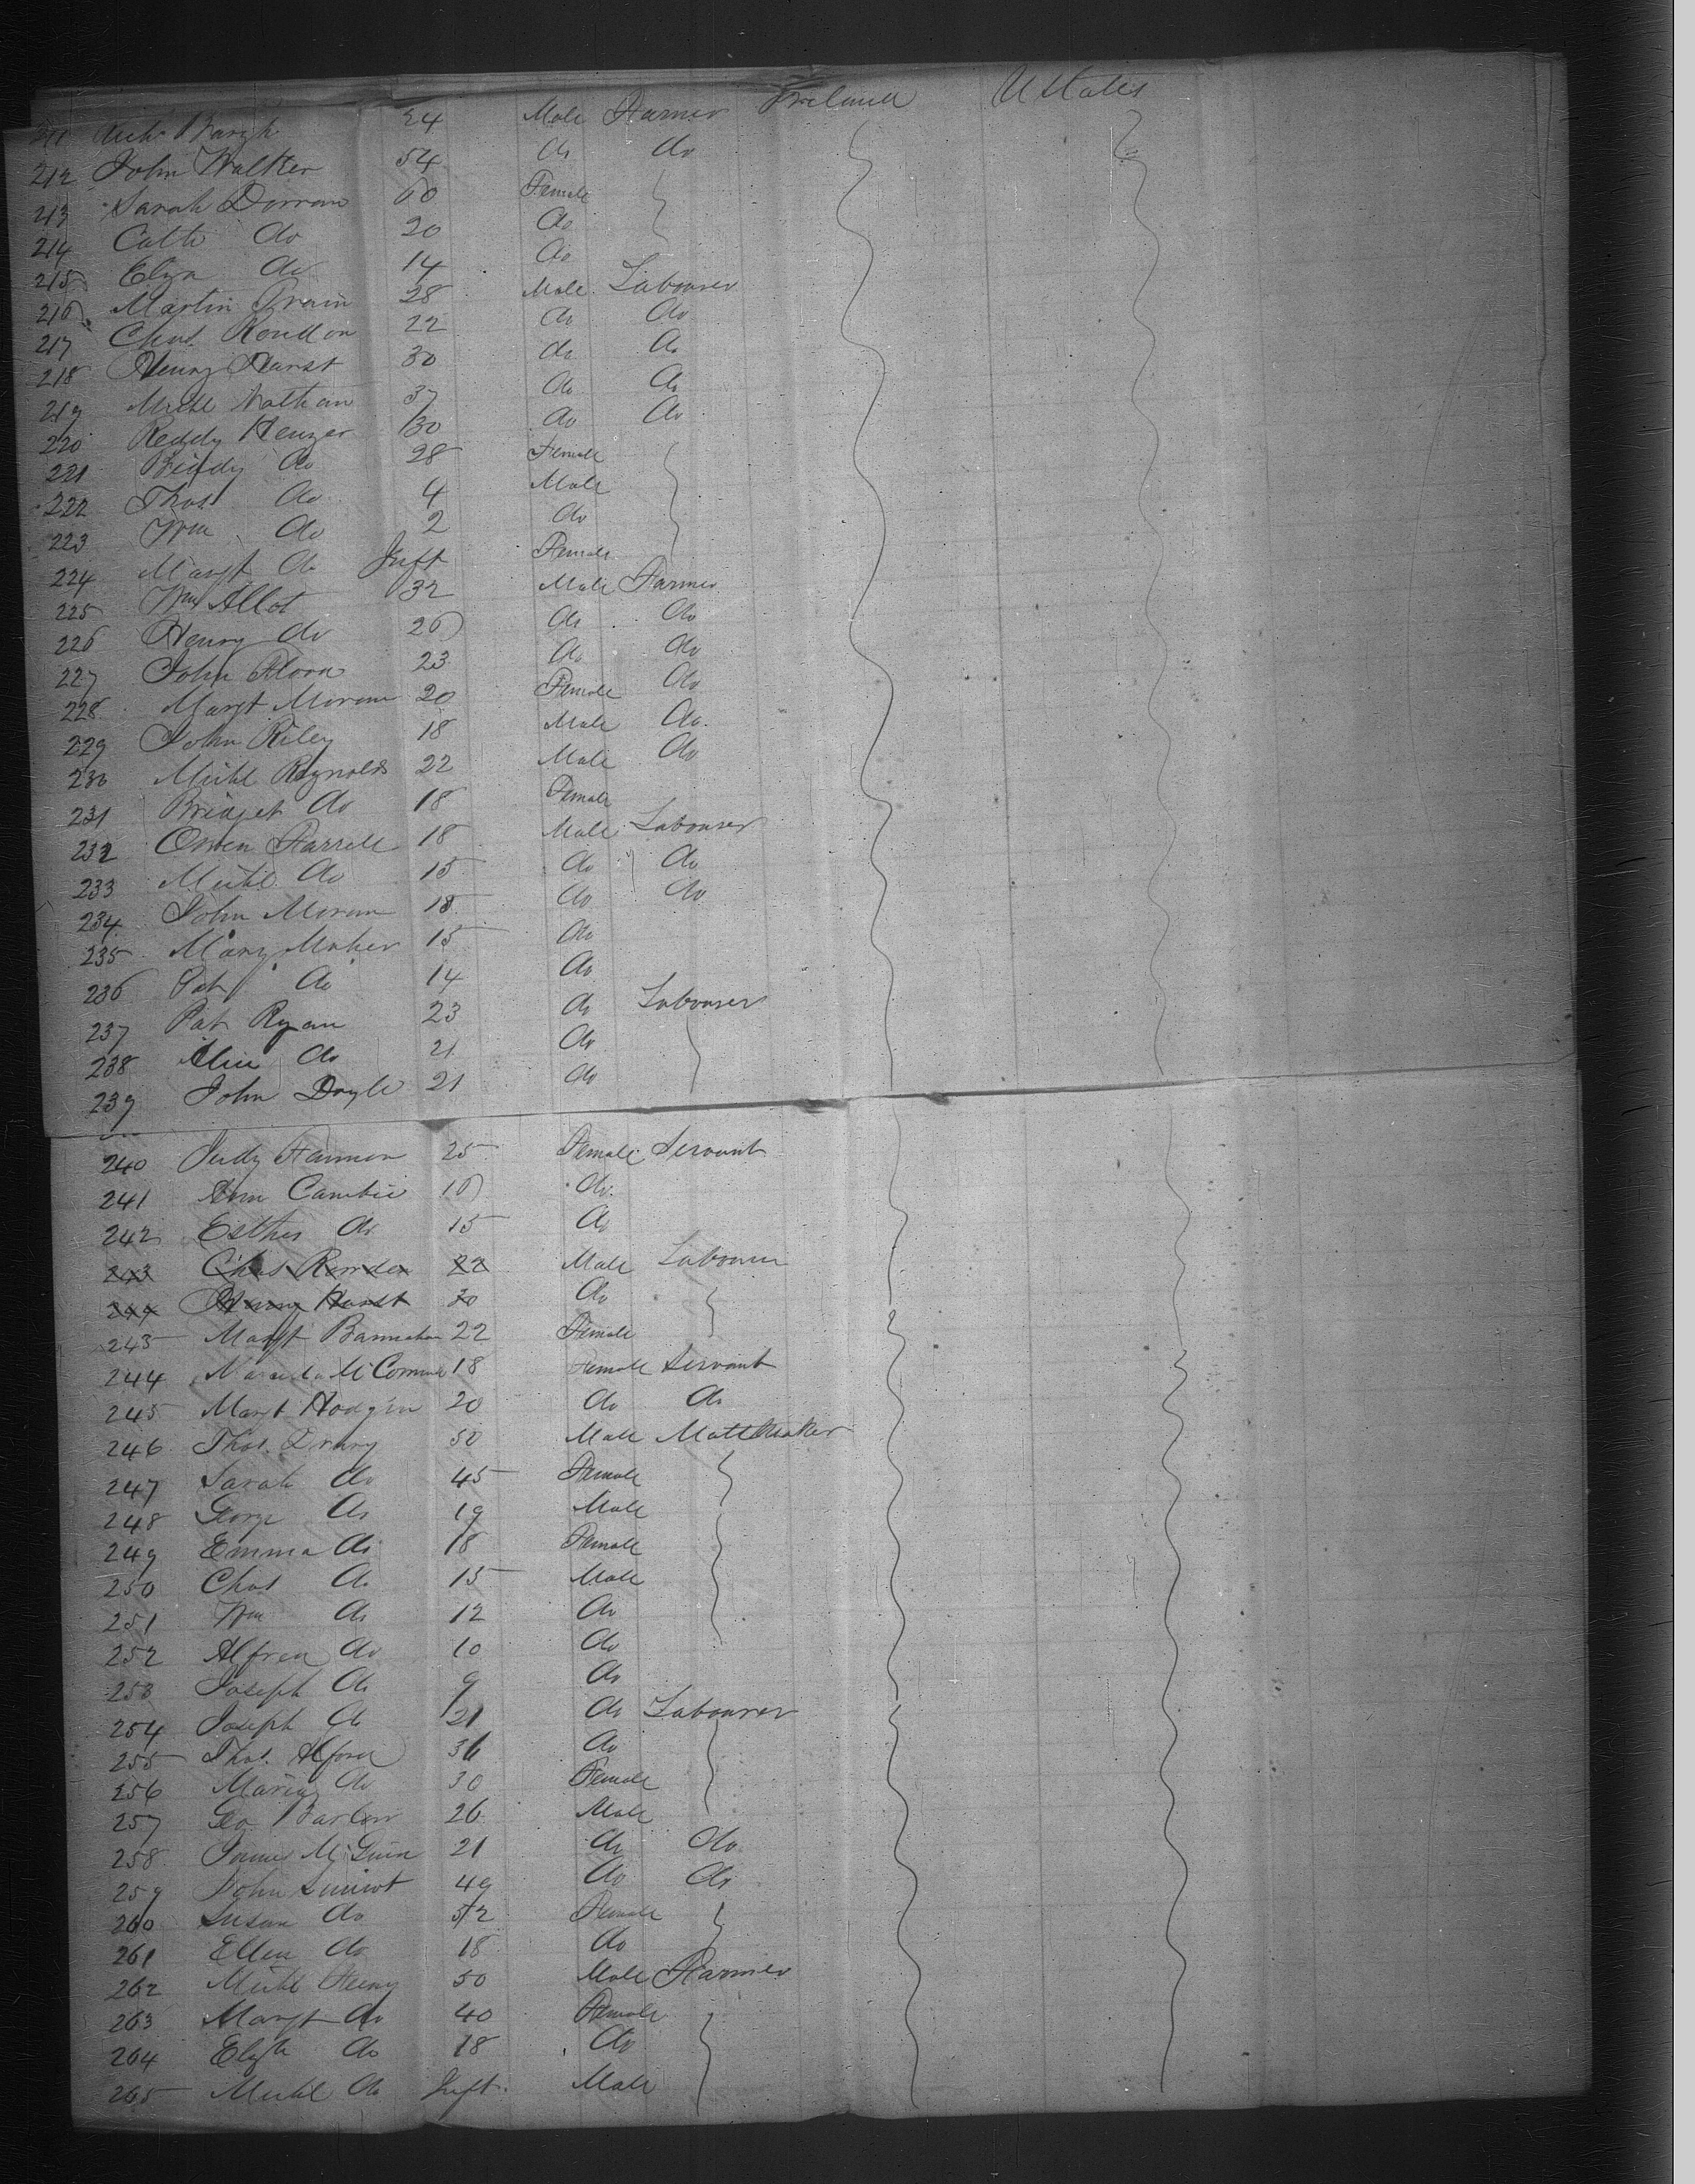 211 24 Male Farmer Ireland U States
212 John Walker 54 do do
213 Sarah Dorran 60 Female
214 Cath do 20 do
215 Eliza do 14 do
216 Martin 28 Male Labourer
217 Chas 22 do do
218 Henry Hurst 30 do do
219 Michl 37 do do
220 Reddy Henzer 30 do do
221 Biddy do 28 Female
222 Thos do 4 Male
223 Wm do 2 do
224 Margt do Inft Female
225 Wm Allot 32 Male Farmer
226 Henry do 26 do do
227 John 23 do do
228 Margt Moran 20 Female do
229 John Riley 18 Male do
230 Michl Reynolds 22 Male do
231 Bridget do 18 Female
232 Owen Farrell 18 Male Labourer
233 Michl do 15 do do
234 John Moran 18 do do
235 Mary Maher 15 do
236 Pat do 14 do
237 Pat Ryan 23 do Labourer
238 do 21 do
239 John Doyle 21 do
240 Judy Hannon 25 Female Servant
241 Ann Cambie 16 do
242 Esther do 15 do
243 Chas 22 Male Labourer
244 Henry Hurst 30 do
243 Margt 22 Female
244 18 Female Servant
245 Margt Hodgin 20 do do
246 Thos. Drury 50 Male Mattmaker
247 Sarah do 45 Female
248 George do 19 Male
249 Emma do 18 Female
250 Chas do 15 Male
251 Wm do 12 do
252 Alfred do 10 do
253 Joseph do 9 do
254 Joseph do 21 do Labourer
255 Thos. Alford 36 do
256 Maria do 30 Female
257 Geo Barlow 26 Male
258 James McGuin 21 do do
259 John Sinnot 49 do do
260 Susan do 52 Female
261 Ellen do 18 do
262 Michl 50 Male Farmer
263 Margt do 40 Female
264 do 18 do
265 Michl do Inft. Male